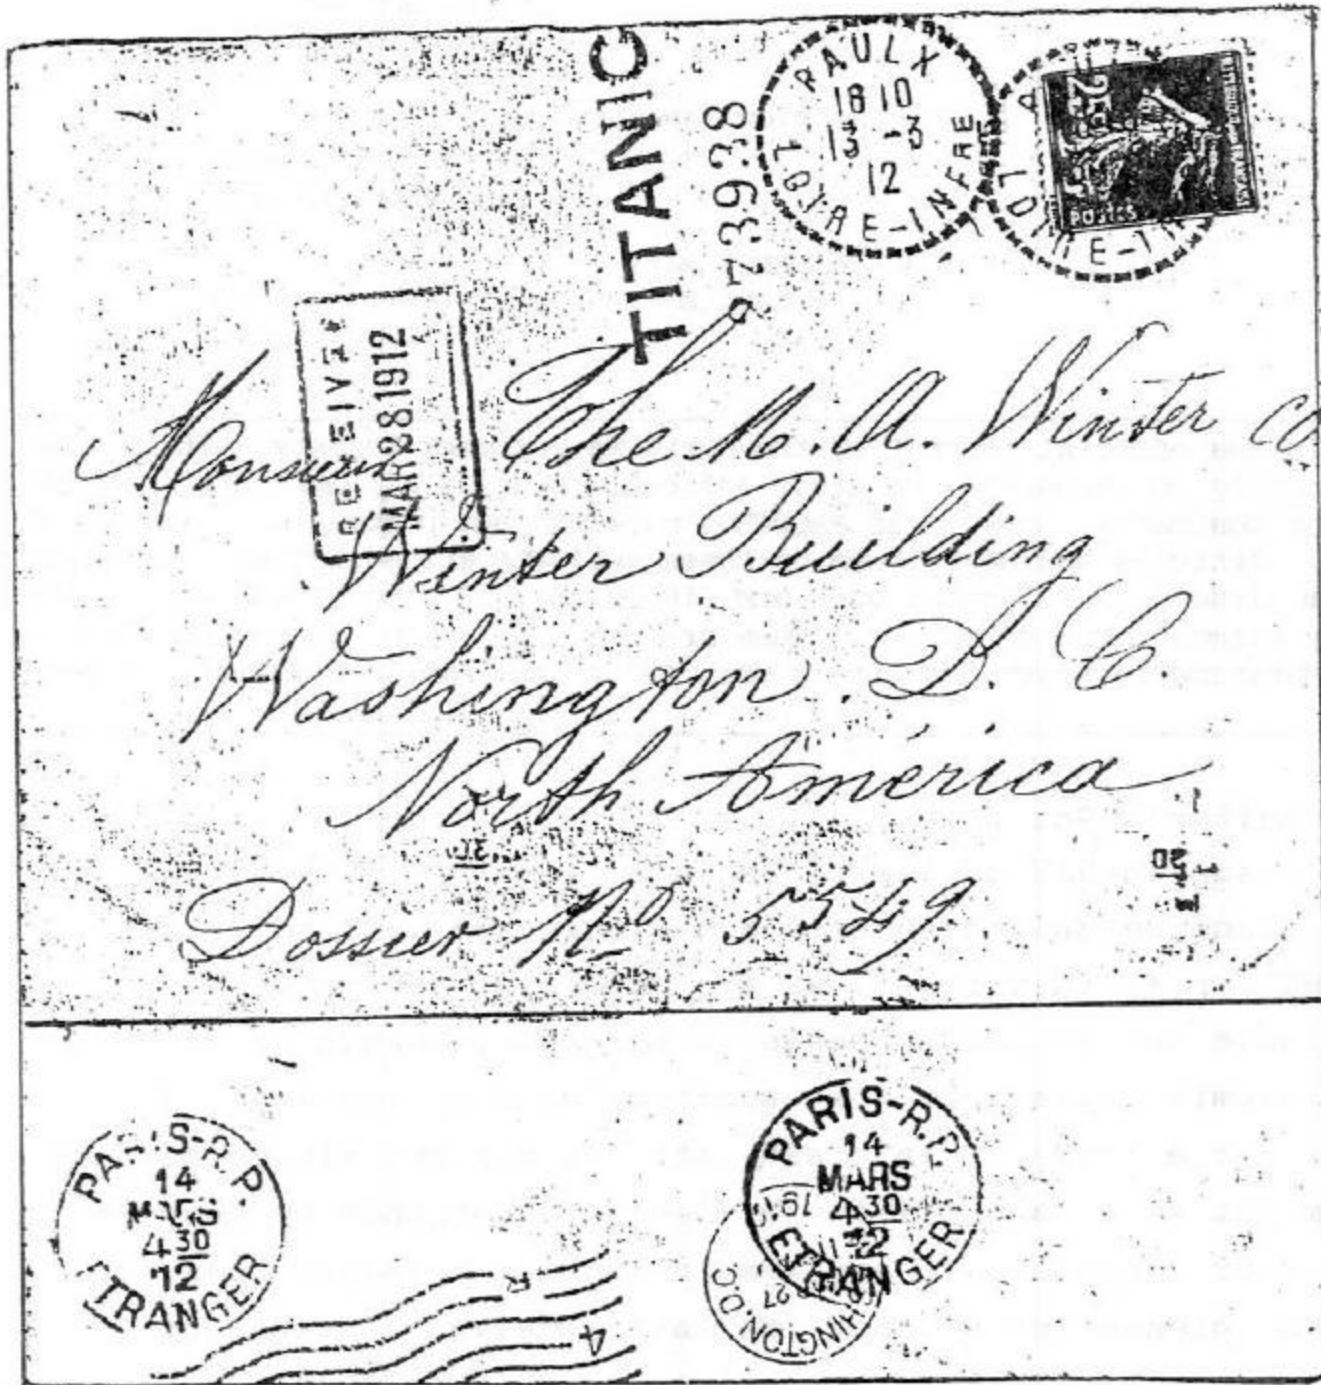 TITANIC
73938
PAULX
18 10
13 -3
12
LOIRE-INFRE
25
POSTES
MAR 28 1912
Monsieur The M. A. Winter Co.
Winter Building
Washington. D. C
North America
Dossier No 5549
PARIS-R.P.
14
MARS
4 30
12
ETRANGER
PARIS-R.P.
14
MARS
4 30
12
ETRANGER